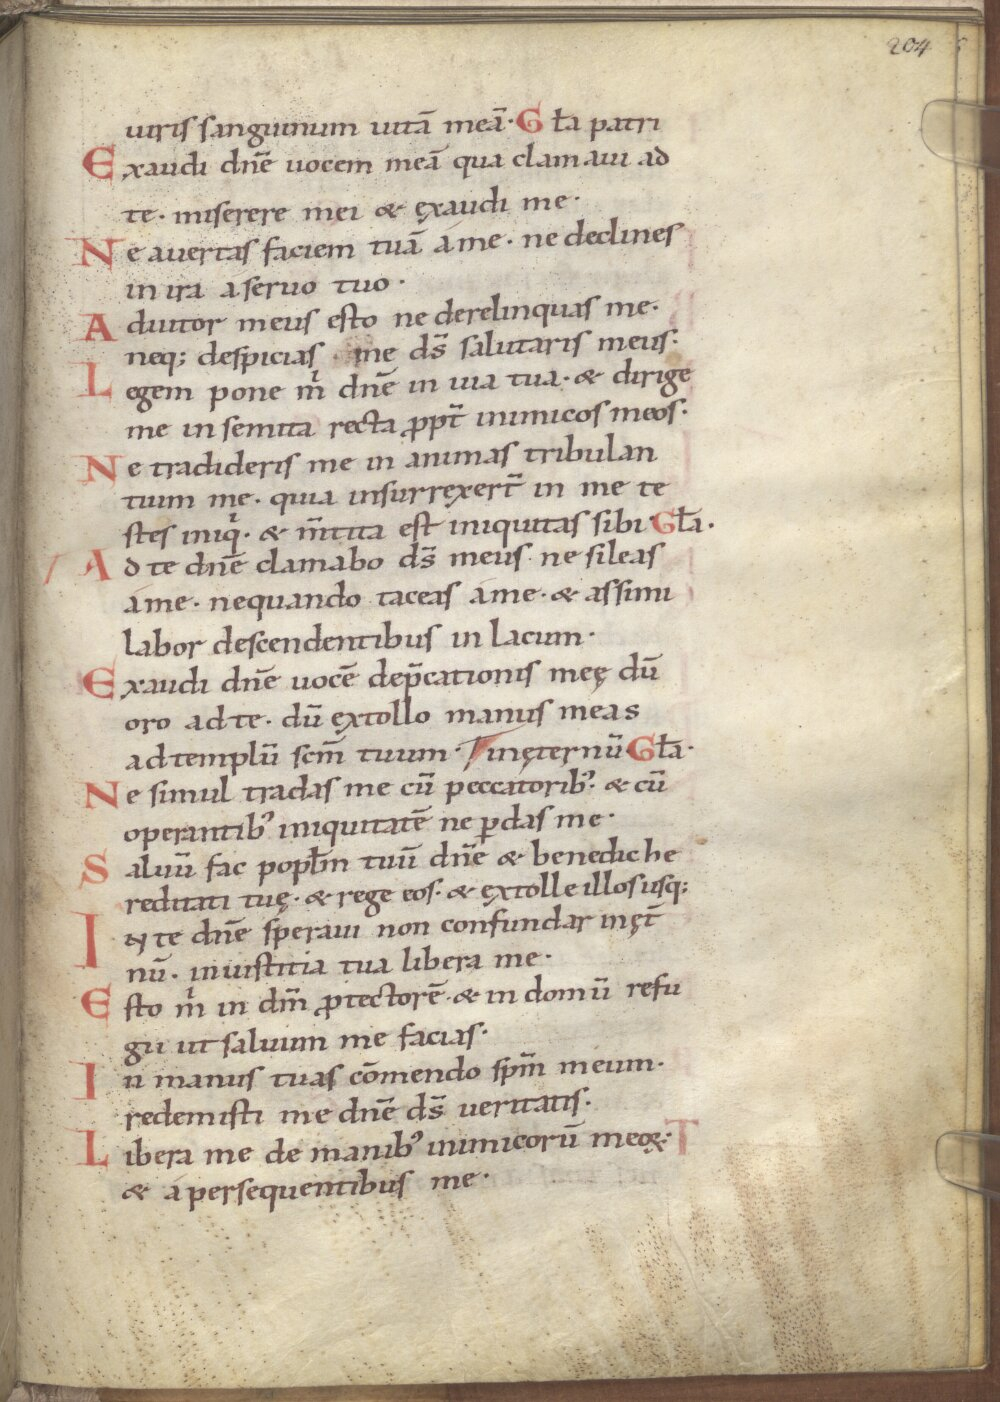 204
uiris sanguinum uitā meā· Gl̄a patri
Exaudi dn̄e uocem meā qua clamaui ad
te· miserere mei & ęxaudi me·
Ne auertas faciem tuā áme· ne declines
in ira aseruo tuo·
Adiutor meus esto ne derelinquas me·
neq; despicias me ds̄ salutaris meus·
Legem pone m̄ dn̄e in uia tua· & dirige
me in semita recta ꝓpt̄ inimicos meos·
Ne tradideris me in animas tribulan
tium me· quia insurręxert̄ in me te
stes iniq· & m̄tita est iniquitas sibi· Gl̄a·
Ad te dn̄e clamabo ds̄ meus ne sileas
áme· nequando taceas áme· & assimi
labor descendentibus in lacum·
Exaudi dn̄e uocē dep̄cationis meę dū
oro ad te· dū ęxtollo manus meas
ad templū scm̄ tuum· inęternū Gl̄a·
Ne simul tradas me cū peccatorib'· & cū
operantib' iniquitatē ne ꝑdas me·
Saluū fac popl̄m tuū dn̄e & benedic he
reditati tuę· & rege eos· & ęxtolle illos usq;
IN te dn̄e speraui non confundar inęt̄
nū· iniustitia tua libera me·
Esto m̄ in dm̄ ꝓtectorē· & in domū refu
gii ut saluum me facias·
In manus tuas cōmendo spm̄ meum·
redemisti me dn̄e ds̄ ueritatis·
Libera me de manib' inimicorū meoꝝ· T
& á persequentibus me·